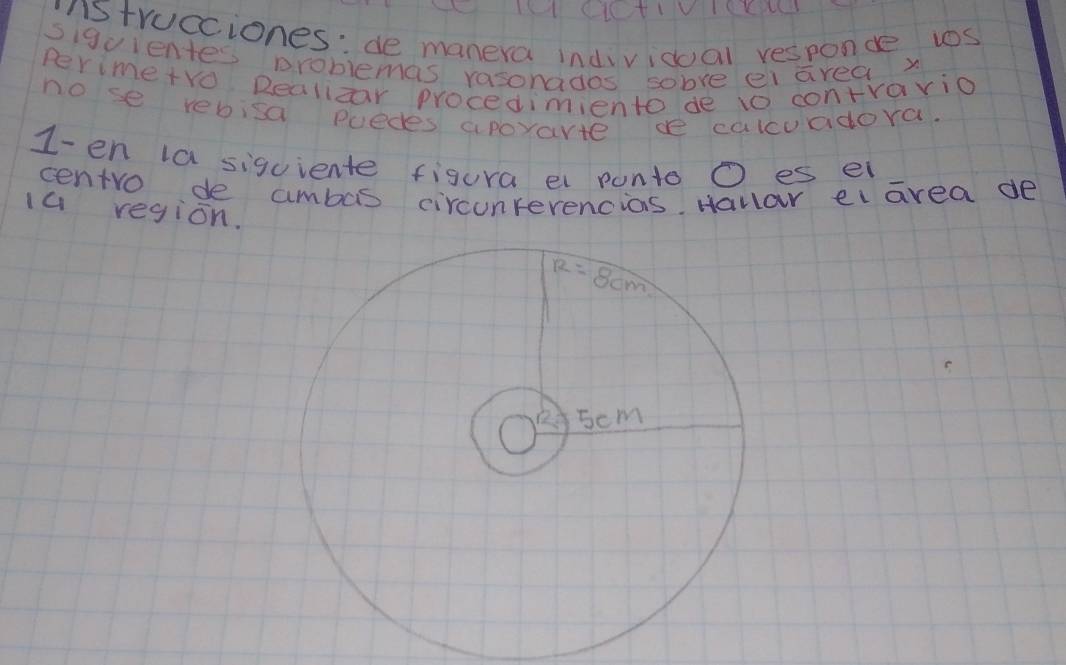 Instrucciones: de manera individual responde los
siguientes problemas rasonados sobre el área y
Perimetro. Realizar procedimiento de lo contrario
no se rebisa puedes apoyarte de calculadora.
1- en la siguiente figura el punto O es el
centro de ambas circunferencias. Hallar el área de
la región.
R = 8cm
R = 5cm
O